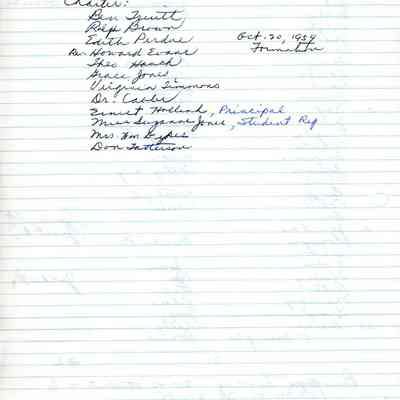 Charter:
Ben Truitt
Ralph Brown
Edith Perdue Oct. 20, 1959
Dr. Howard Evans Formation
Theo Haack
Grace Jones
Virginia Simmons
Dr.
Ernest Holland, Principal
Miss Suzanne Jones, Student Rep
Mrs. Wm Dykes
Don Patterson